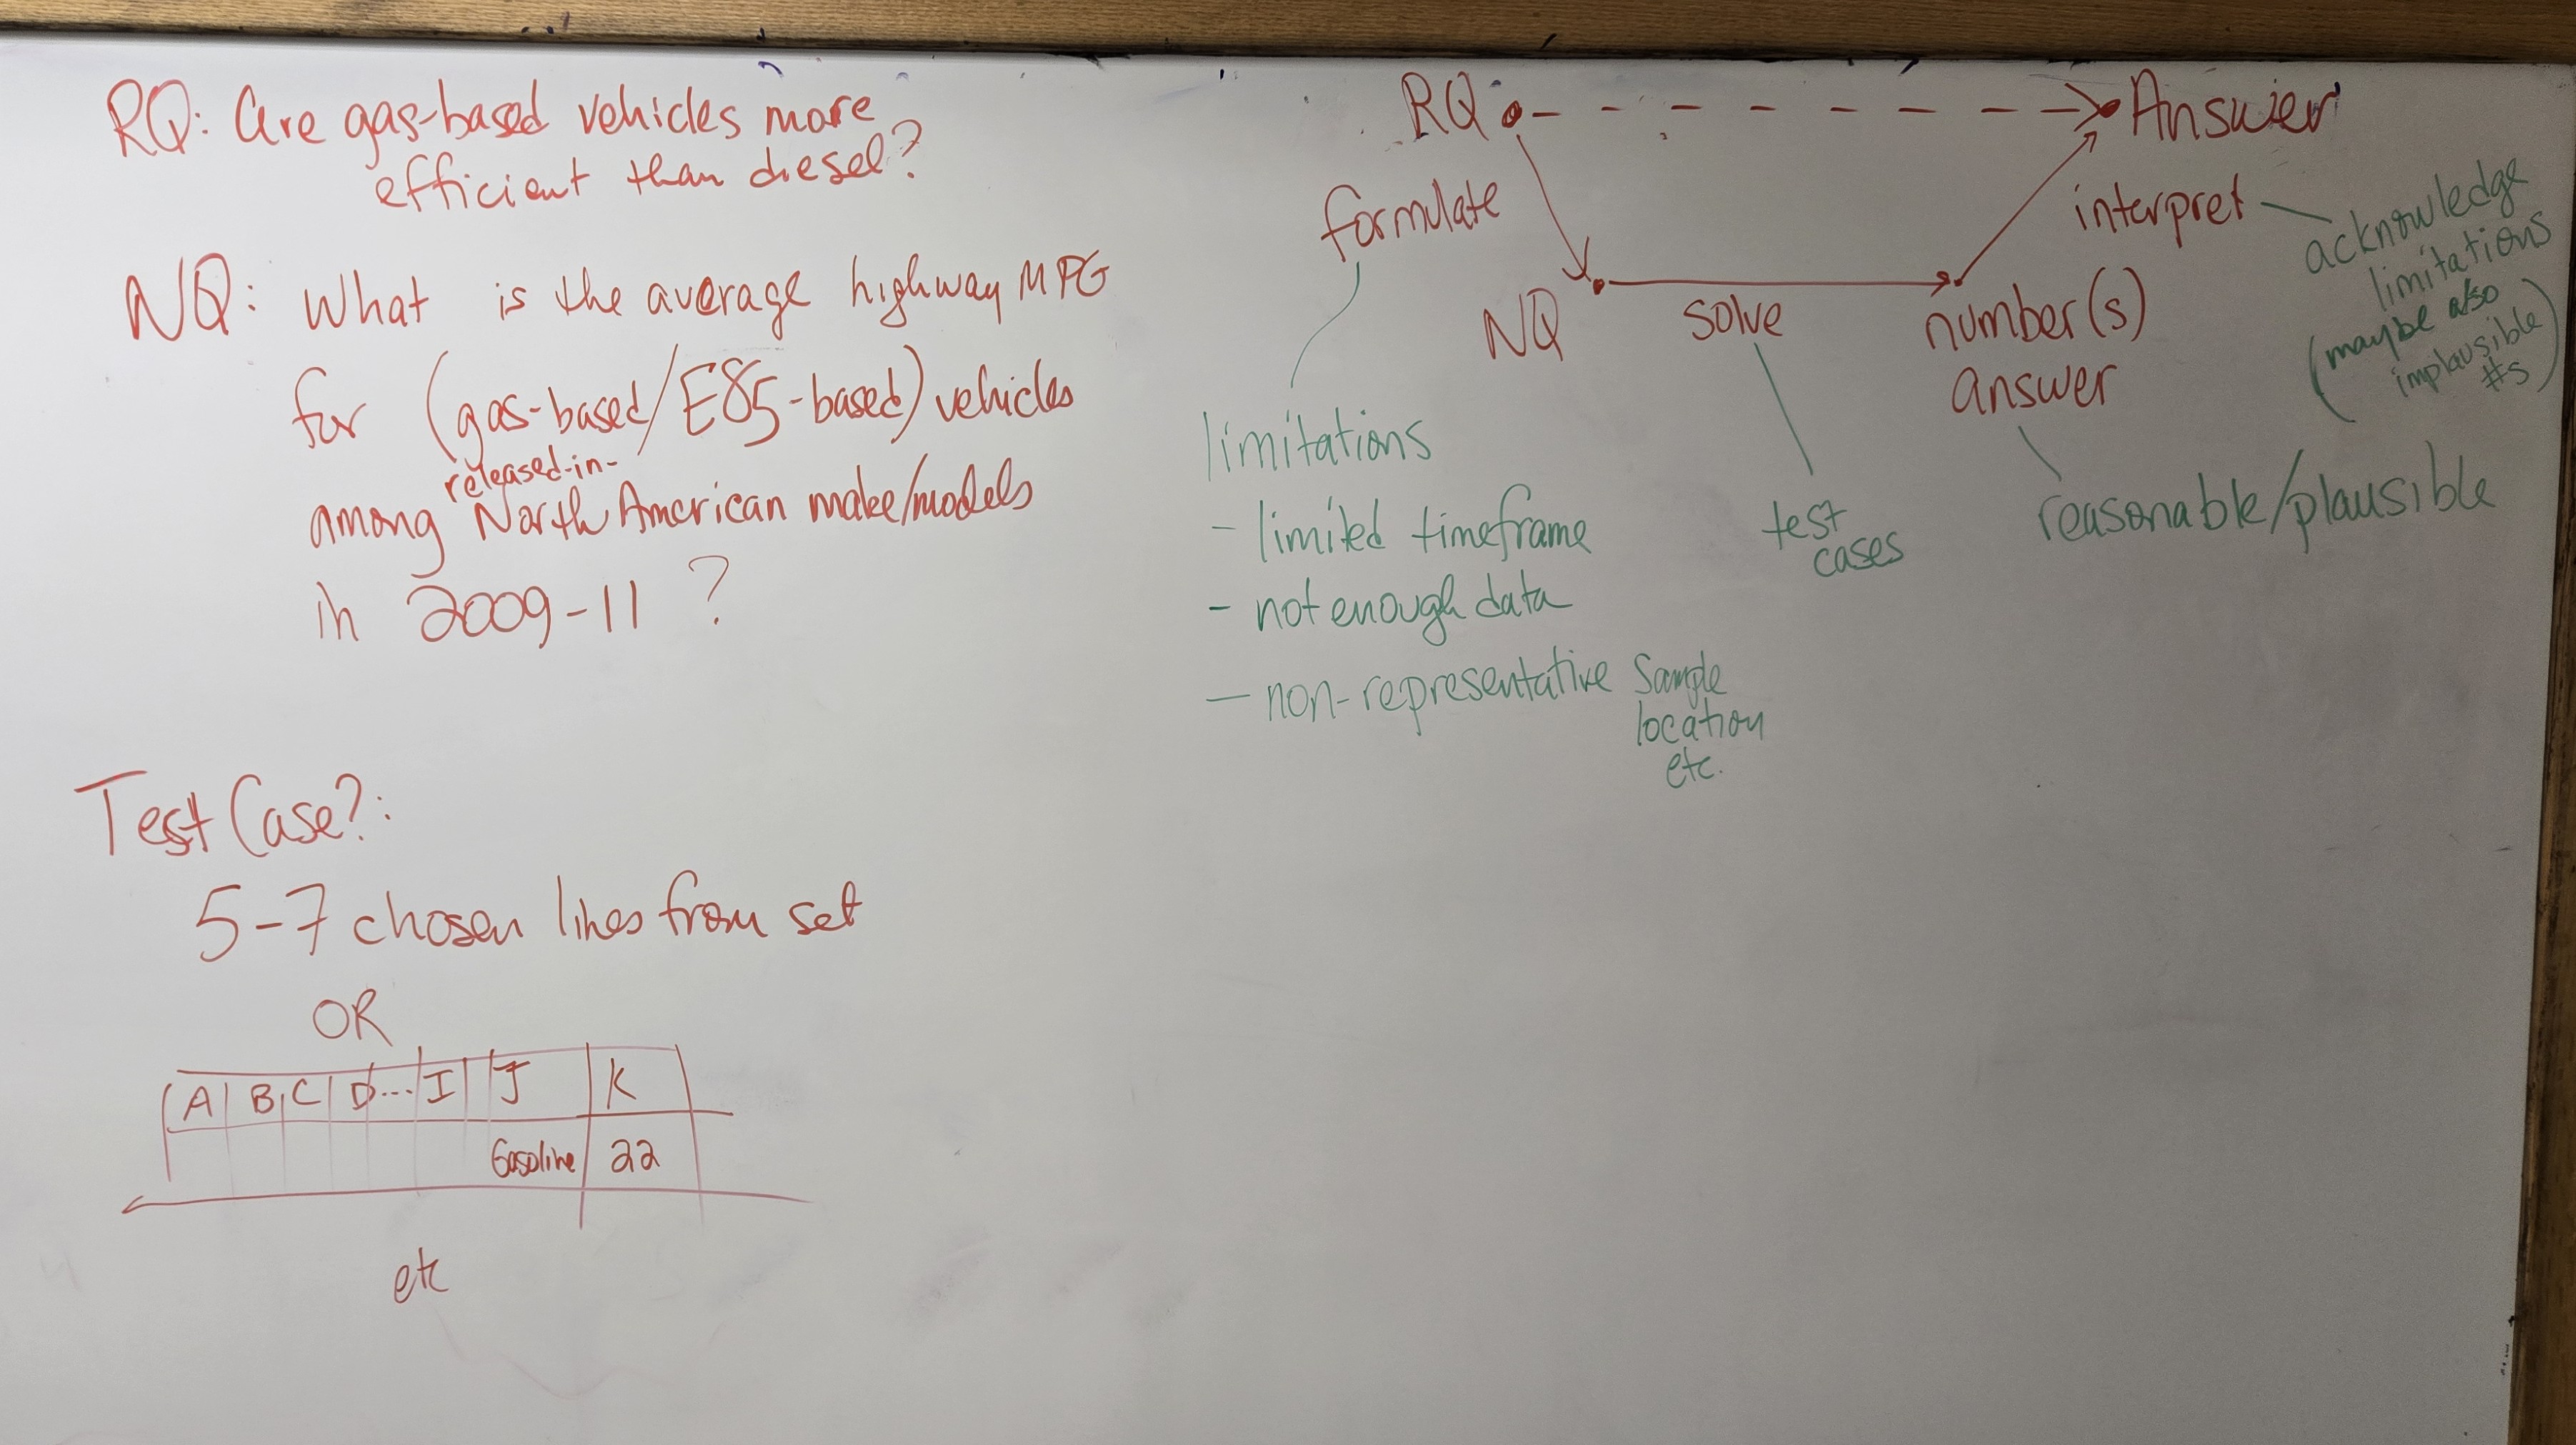 RQ: Are gas-based vehicles more
efficient than diesel?
NQ: What is the average highway MPG
for (gas-based/E85-based) vehicles
released-in-
among North American make/models
in 2009-11 ?
Test Case?:
5-7 chosen lines from set
OR
A B C D... I J K
Gasoline 22
etc
RQ Answer
formulate
interpret
acknowledge
limitations
(maybe also
implausible
#s)
NQ
solve
number(s)
answer
limitations
- limited timeframe
- not enough data
- non-representative sample
location
etc.
test
cases
reasonable/plausible